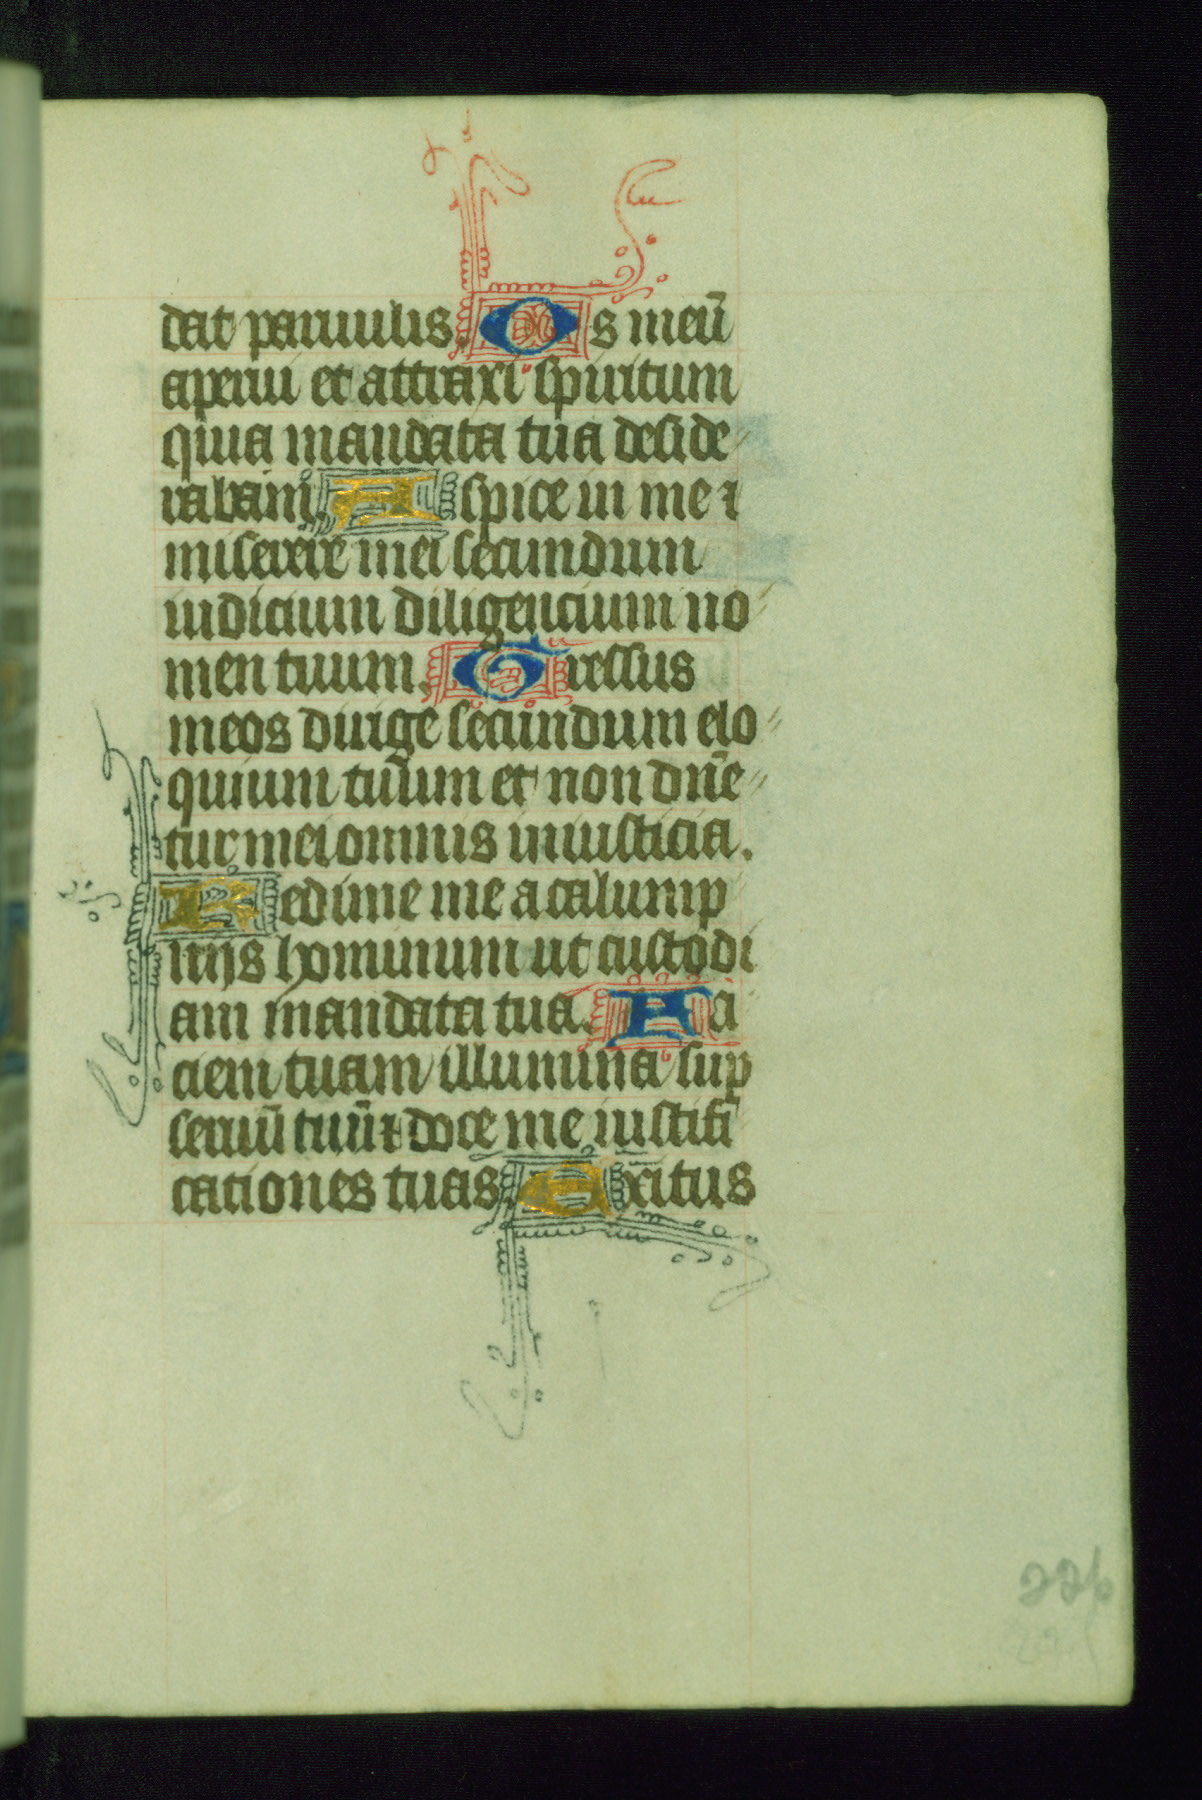 dat paruulis. Os meū
aperui et attraxi spiritum
quia mandata tua deside
rabam. Aspice in me ⁊
miserere mei secundum
iudicium diligencium no
men tuum. Gressus
meos dirige secundum elo
quium tuum et non dn̄e
tur mei omnis iniusticia.
Redime me a calump
nijs hominum ut custodi
am mandata tua. Fa
ciem tuam illumina sup
seruū tuū ⁊ doce me iustifi
cationes tuas. Exitus